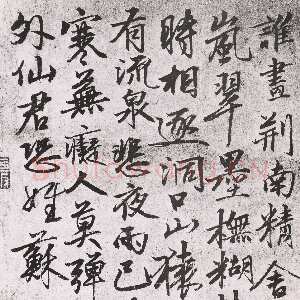 誰畫荆南精舍
嵐翠墨橅糊
時相逐洞口山猿
有流泉悲夜雨已
寒蕪癡人莫彈
外仙君恐姓蘇